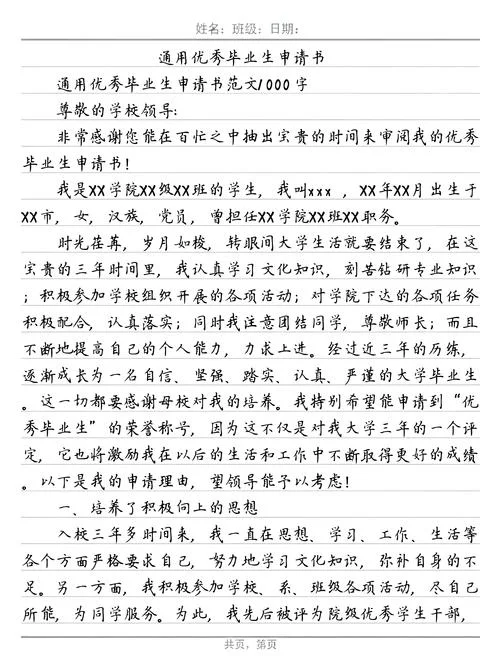 姓名：班级：日期：
通用优秀毕业生申请书
通用优秀毕业生申请书范文1000字
尊敬的学校领导：
非常感谢您能在百忙之中抽出宝贵的时间来审阅我的优秀
毕业生申请书！
我是XX学院XX级XX班的学生，我叫xxx ，XX年XX月出生于
XX市，女，汉族，党员，曾担任XX学院XX班XX职务。
时光荏苒，岁月如梭，转眼间大学生活就要结束了，在这
宝贵的三年时间里，我认真学习文化知识，刻苦钻研专业知识
；积极参加学校组织开展的各项活动；对学院下达的各项任务
积极配合，认真落实；同时我注意团结同学，尊敬师长；而且
不断地提高自己的个人能力，力求上进。经过近三年的历练，
逐渐成长为一名自信、坚强、踏实、认真、严谨的大学毕业生
。这一切都要感谢母校对我的培养。我特别希望能申请到“优
秀毕业生”的荣誉称号，因为这不仅是对我大学三年的一个评
定，它也将激励我在以后的生活和工作中不断取得更好的成绩
。以下是我的申请理由，望领导能予以考虑！
一、培养了积极向上的思想
入校三年多时间来，我一直在思想、学习、工作、生活等
各个方面严格要求自己，努力地学习文化知识，弥补自身的不
足。另一方面，我积极参加学校、系、班级各项活动，尽自己
所能，为同学服务。为此，我先后被评为院级优秀学生干部，
共页，第页